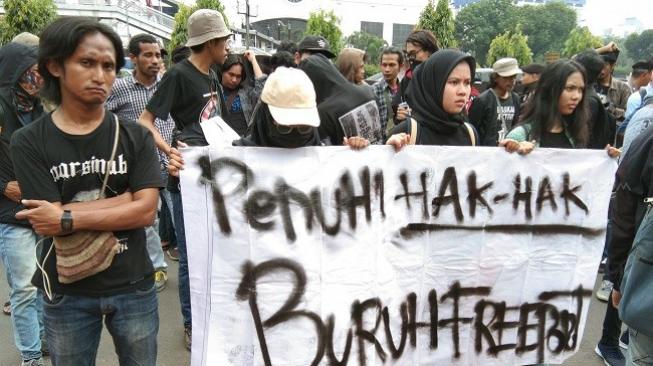 PENUHI HAK-HAK
BURUH FREEPORT